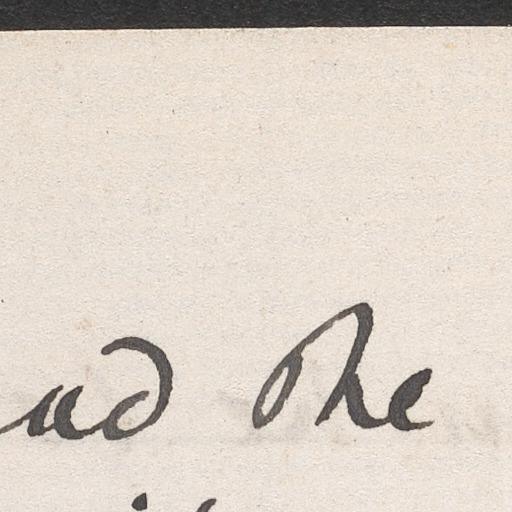 and the